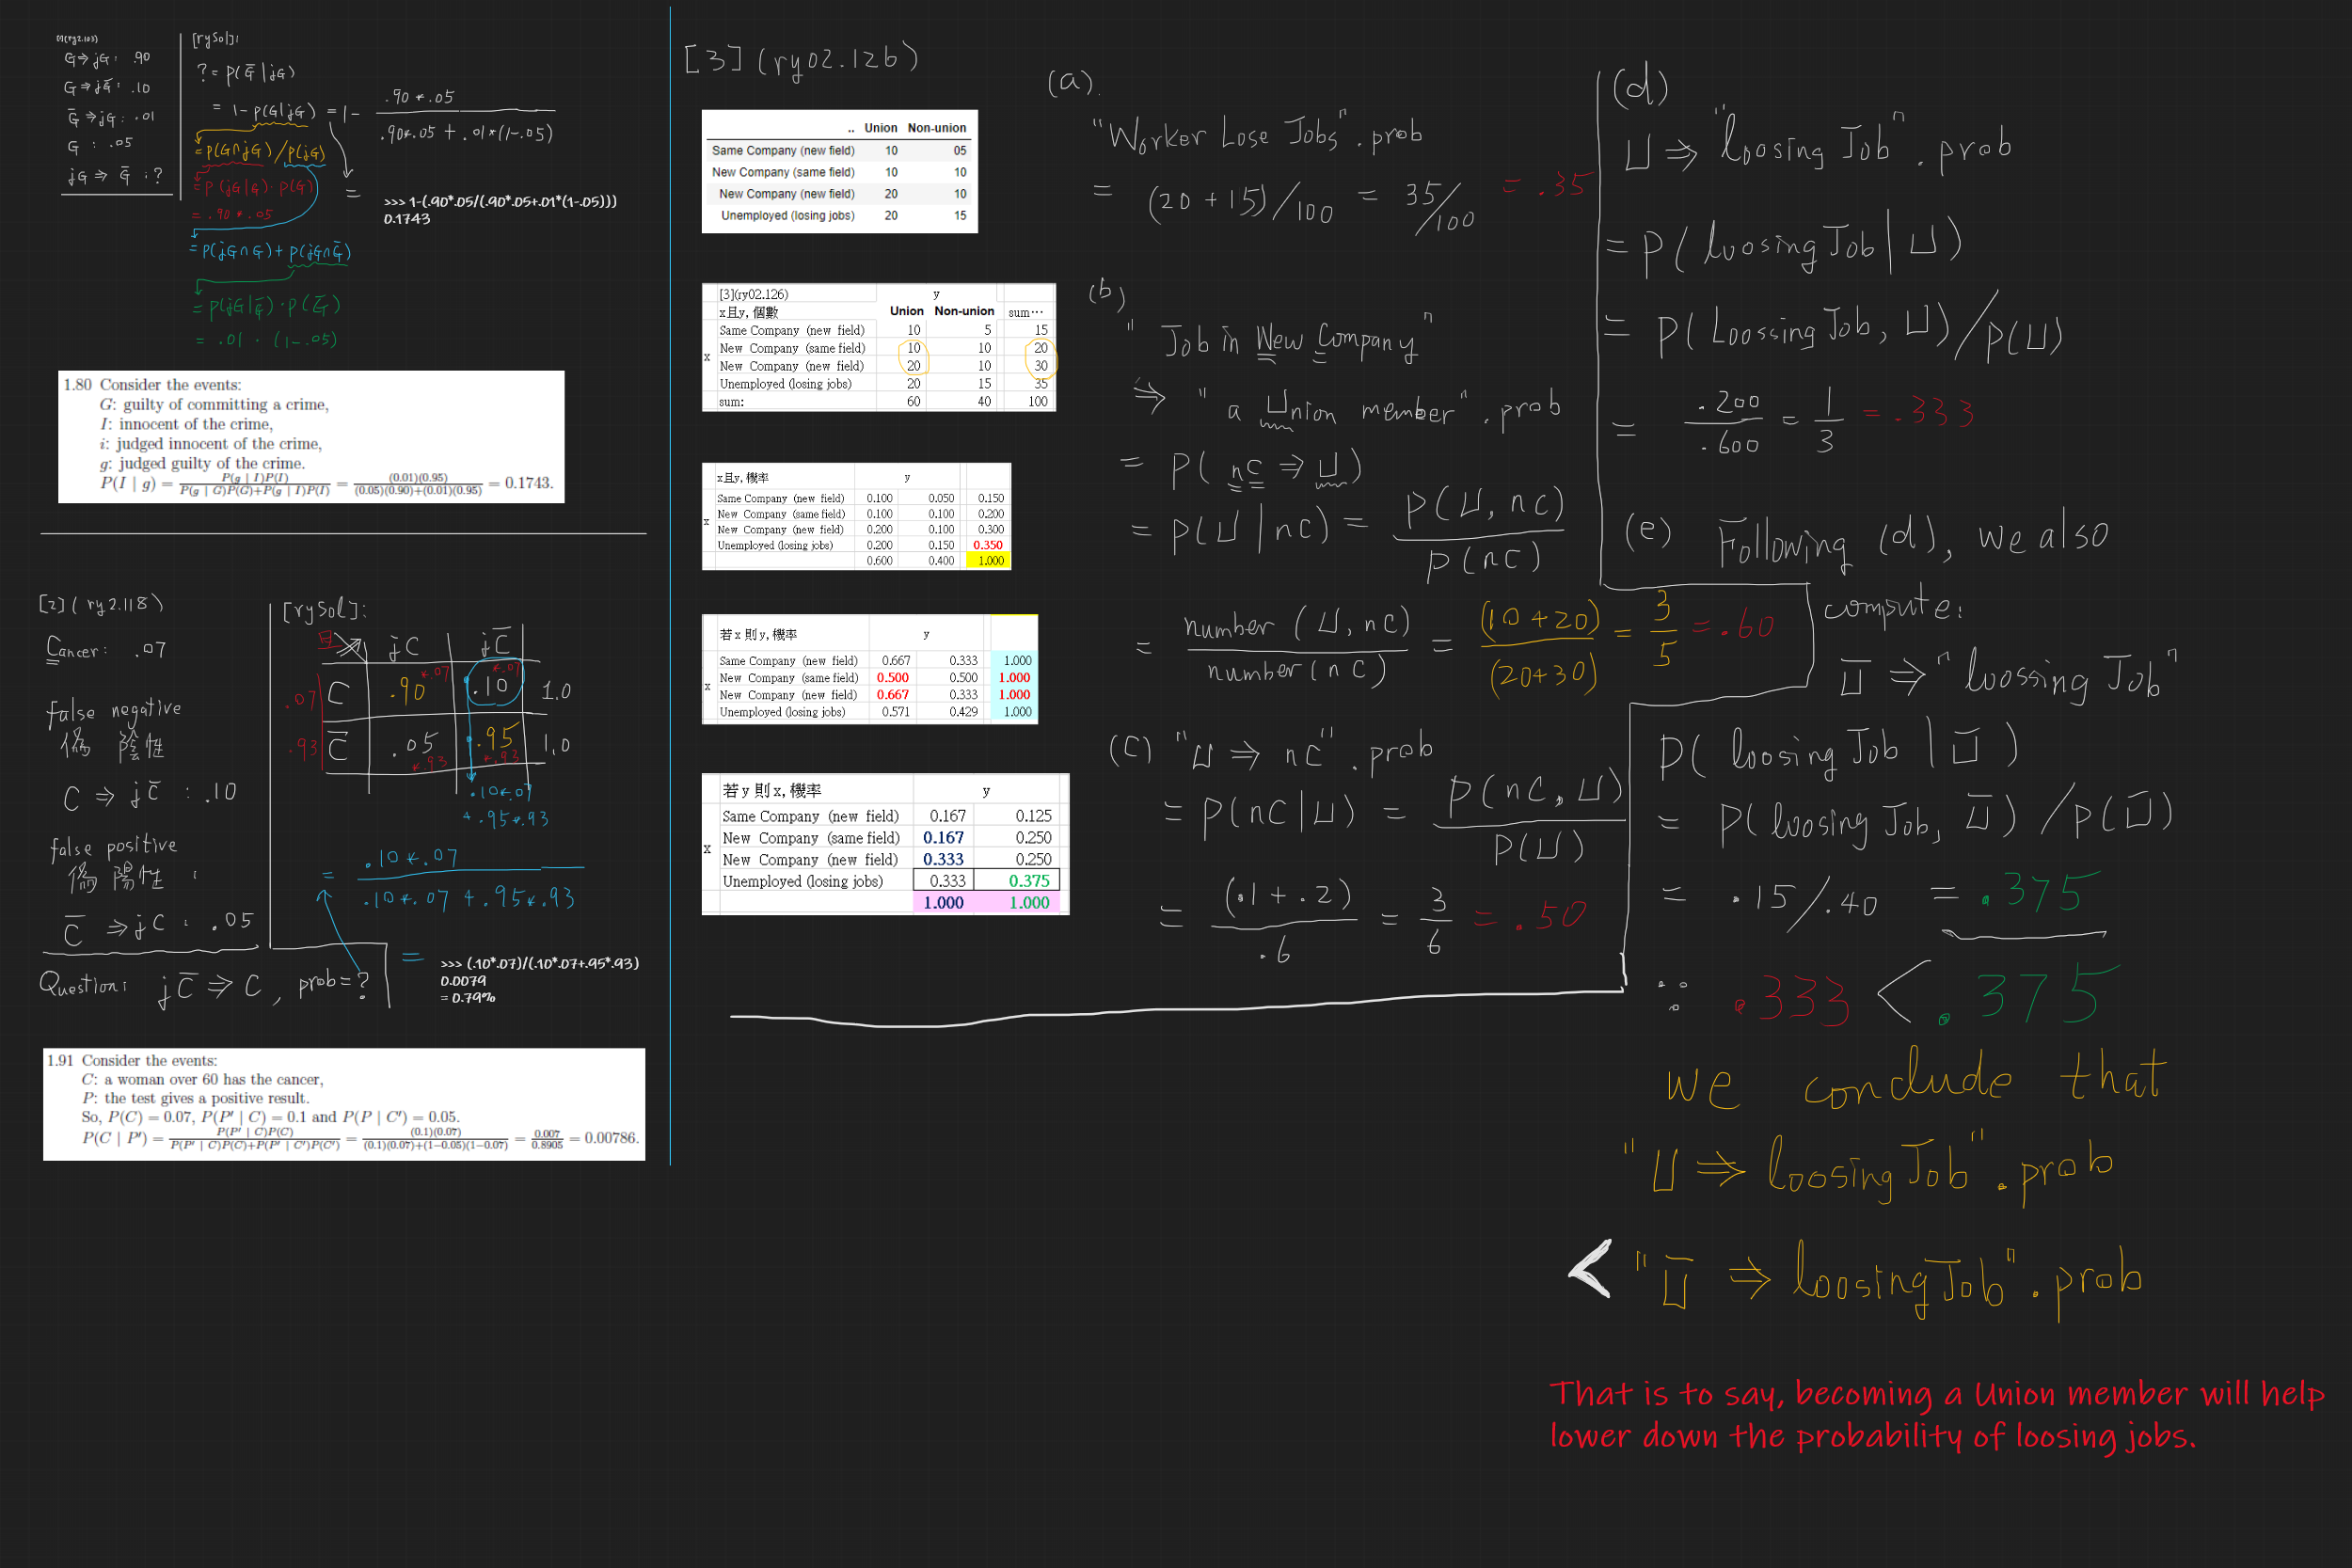 01(ry2.103)
G⇒jG: .90
G⇒jG̅: .10
G̅⇒jG: .01
G: .05
jG⇒G̅: ?
[rySol]:
?= p(G̅|jG)
= 1-p(G|jG) = 1- .90*.05 / .90*.05 + .01*(1-.05)
=p(G∩jG)/p(jG)
=p(jG|G)·p(G)
= .90*.05
=p(jG∩G)+p(jG∩G̅)
=p(jG|G̅)·p(G̅)
= .01 · (1-.05)
=
>>> 1-(.90*.05/(.90*.05+.01*(1-.05)))
0.1743
1.80 Consider the events:
G: guilty of committing a crime,
I: innocent of the crime,
i: judged innocent of the crime,
g: judged guilty of the crime.
P(I | g) = P(g | I)P(I) / P(g | G)P(G)+P(g | I)P(I) = (0.01)(0.95) / (0.05)(0.90)+(0.01)(0.95) = 0.1743.
[2](ry2.118)
Cancer: .07
false negative
偽 陰性
C ⇒ jC̅ : .10
false positive
偽陽性 :
C̅ ⇒ jC : .05
Question: jC̅ ⇒ C, prob=?
[rySol]:
且 jC jC̅
.07 C .90 *.07 .10 *.07 1.0
.93 C̅ .05 *.93 .95 *.93 1.0
.10*.07
+ .95*.93
= .10*.07 / .10*.07 + .95*.93
=
>>> (.10*.07)/(.10*.07+.95*.93)
0.0079
= 0.79%
1.91 Consider the events:
C: a woman over 60 has the cancer,
P: the test gives a positive result.
So, P(C) = 0.07, P(P′ | C) = 0.1 and P(P | C′) = 0.05.
P(C | P′) = P(P′ | C)P(C) / P(P′ | C)P(C)+P(P′ | C′)P(C′) = (0.1)(0.07) / (0.1)(0.07)+(1−0.05)(1−0.07) = 0.007 / 0.8905 = 0.00786.
[3](ry02.126)
.. Union Non-union
Same Company (new field) 10 05
New Company (same field) 10 10
New Company (new field) 20 10
Unemployed (losing jobs) 20 15
[3](ry02.126) y
x且y, 個數 Union Non-union sum…
Same Company (new field) 10 5 15
New Company (same field) 10 10 20
x New Company (new field) 20 10 30
Unemployed (losing jobs) 20 15 35
sum: 60 40 100
x且y, 機率 y
Same Company (new field) 0.100 0.050 0.150
New Company (same field) 0.100 0.100 0.200
x New Company (new field) 0.200 0.100 0.300
Unemployed (losing jobs) 0.200 0.150 0.350
0.600 0.400 1.000
若 x 則 y, 機率 y
Same Company (new field) 0.667 0.333 1.000
New Company (same field) 0.500 0.500 1.000
x New Company (new field) 0.667 0.333 1.000
Unemployed (losing jobs) 0.571 0.429 1.000
若 y 則 x, 機率 y
Same Company (new field) 0.167 0.125
New Company (same field) 0.167 0.250
x New Company (new field) 0.333 0.250
Unemployed (losing jobs) 0.333 0.375
1.000 1.000
(a).
"Worker Lose Jobs".prob
= (20+15)/100 = 35/100 = .35
(b)
"Job in New Company"
⇒ "a Union member".prob
= P(nC ⇒ U)
= P(U|nC) = P(U, nC) / P(nC)
= number(U, nC) / number(nC) = (10+20) / (20+30) = 3/5 = .60
(c) "U ⇒ nC".prob
= P(nC|U) = P(nC, U) / P(U)
= (.1+.2) / .6 = 3/6 = .50
(d)
U ⇒ "loosing Job".prob
= P(loosing Job|U)
= P(Loossing Job, U)/P(U)
= .200 / .600 = 1/3 = .333
(e) Following (d), we also
compute:
U̅ ⇒ "loossing Job"
P(loosing Job | U̅)
= P(loosing Job, U̅)/P(U̅)
= .15/.40 = .375
∵ .333 < .375
we conclude that
"U ⇒ loosing Job".prob
< "U̅ ⇒ loosing Job".prob
That is to say, becoming a Union member will help
lower down the probability of loosing jobs.